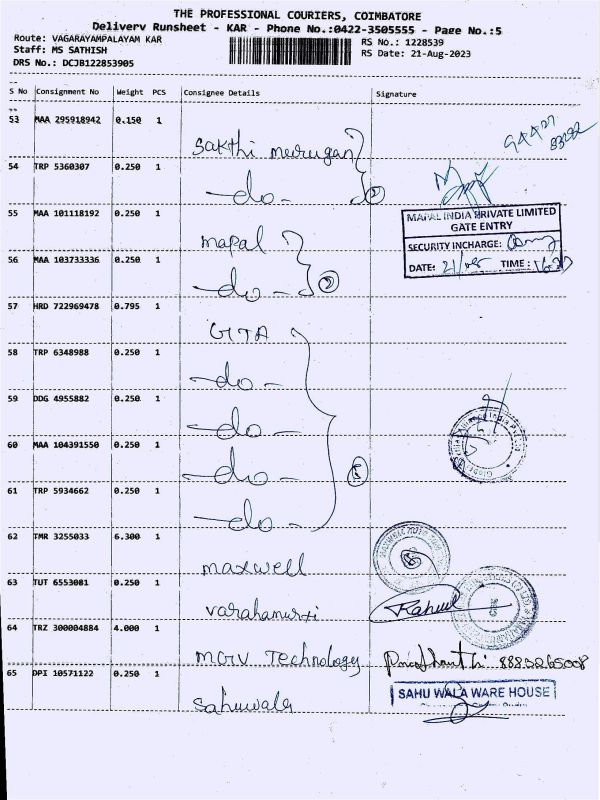 THE PROFESSIONAL COURIERS, COIMBATORE
Delivery Runsheet - KAR - Phone No.:0422-3505555 - Page No.:5
Route: VAGARAYAMPALAYAM KAR
RS No.: 1228539
Staff: MS SATHISH
RS Date: 21-Aug-2023
DRS No.: DCJB122853905
S No Consignment No Weight PCS Consignee Details Signature
53 MAA 295918942 0.150 1
Sakthi murugan
54 TRP 5360307 0.250 1
-do- 2
55 MAA 101118192 0.250 1
MAPAL INDIA PRIVATE LIMITED
GATE ENTRY
mapal
SECURITY INCHARGE:
56 MAA 103733336 0.250 1
DATE: 21/08 TIME:
-do- 2
57 HRD 722969478 0.795 1
GTA
58 TRP 6348988 0.250 1
-do-
59 DDG 4955882 0.250 1
-do-
60 MAA 104391550 0.250 1
-do- 5
61 TRP 5934662 0.250 1
-do-
62 TMR 3255033 6.300 1
maxwell
63 TUT 6553081 0.250 1
varahamurti Rahul
64 TRZ 300004884 4.000 1
Technology 8883265008
65 DPI 10571122 0.250 1
SAHU WALA WARE HOUSE
Sahuwala